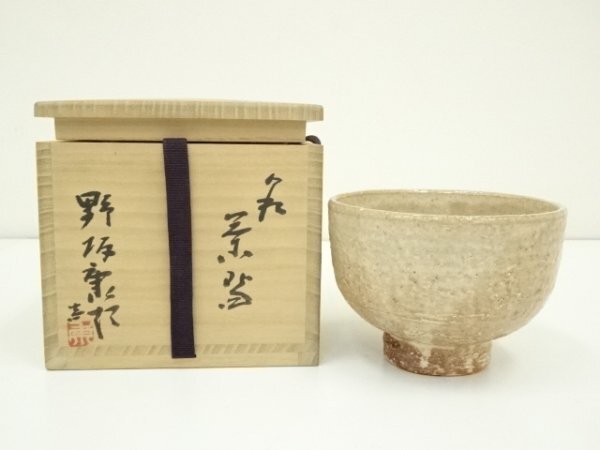 萩 茶碗
野坂康起